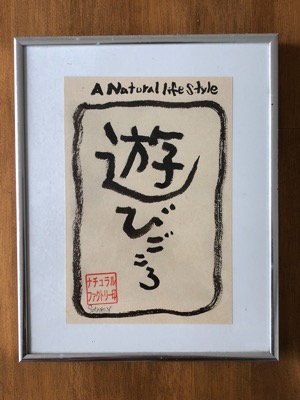 A Natural life style
遊びごころ
ナチュラル
ファクトリー